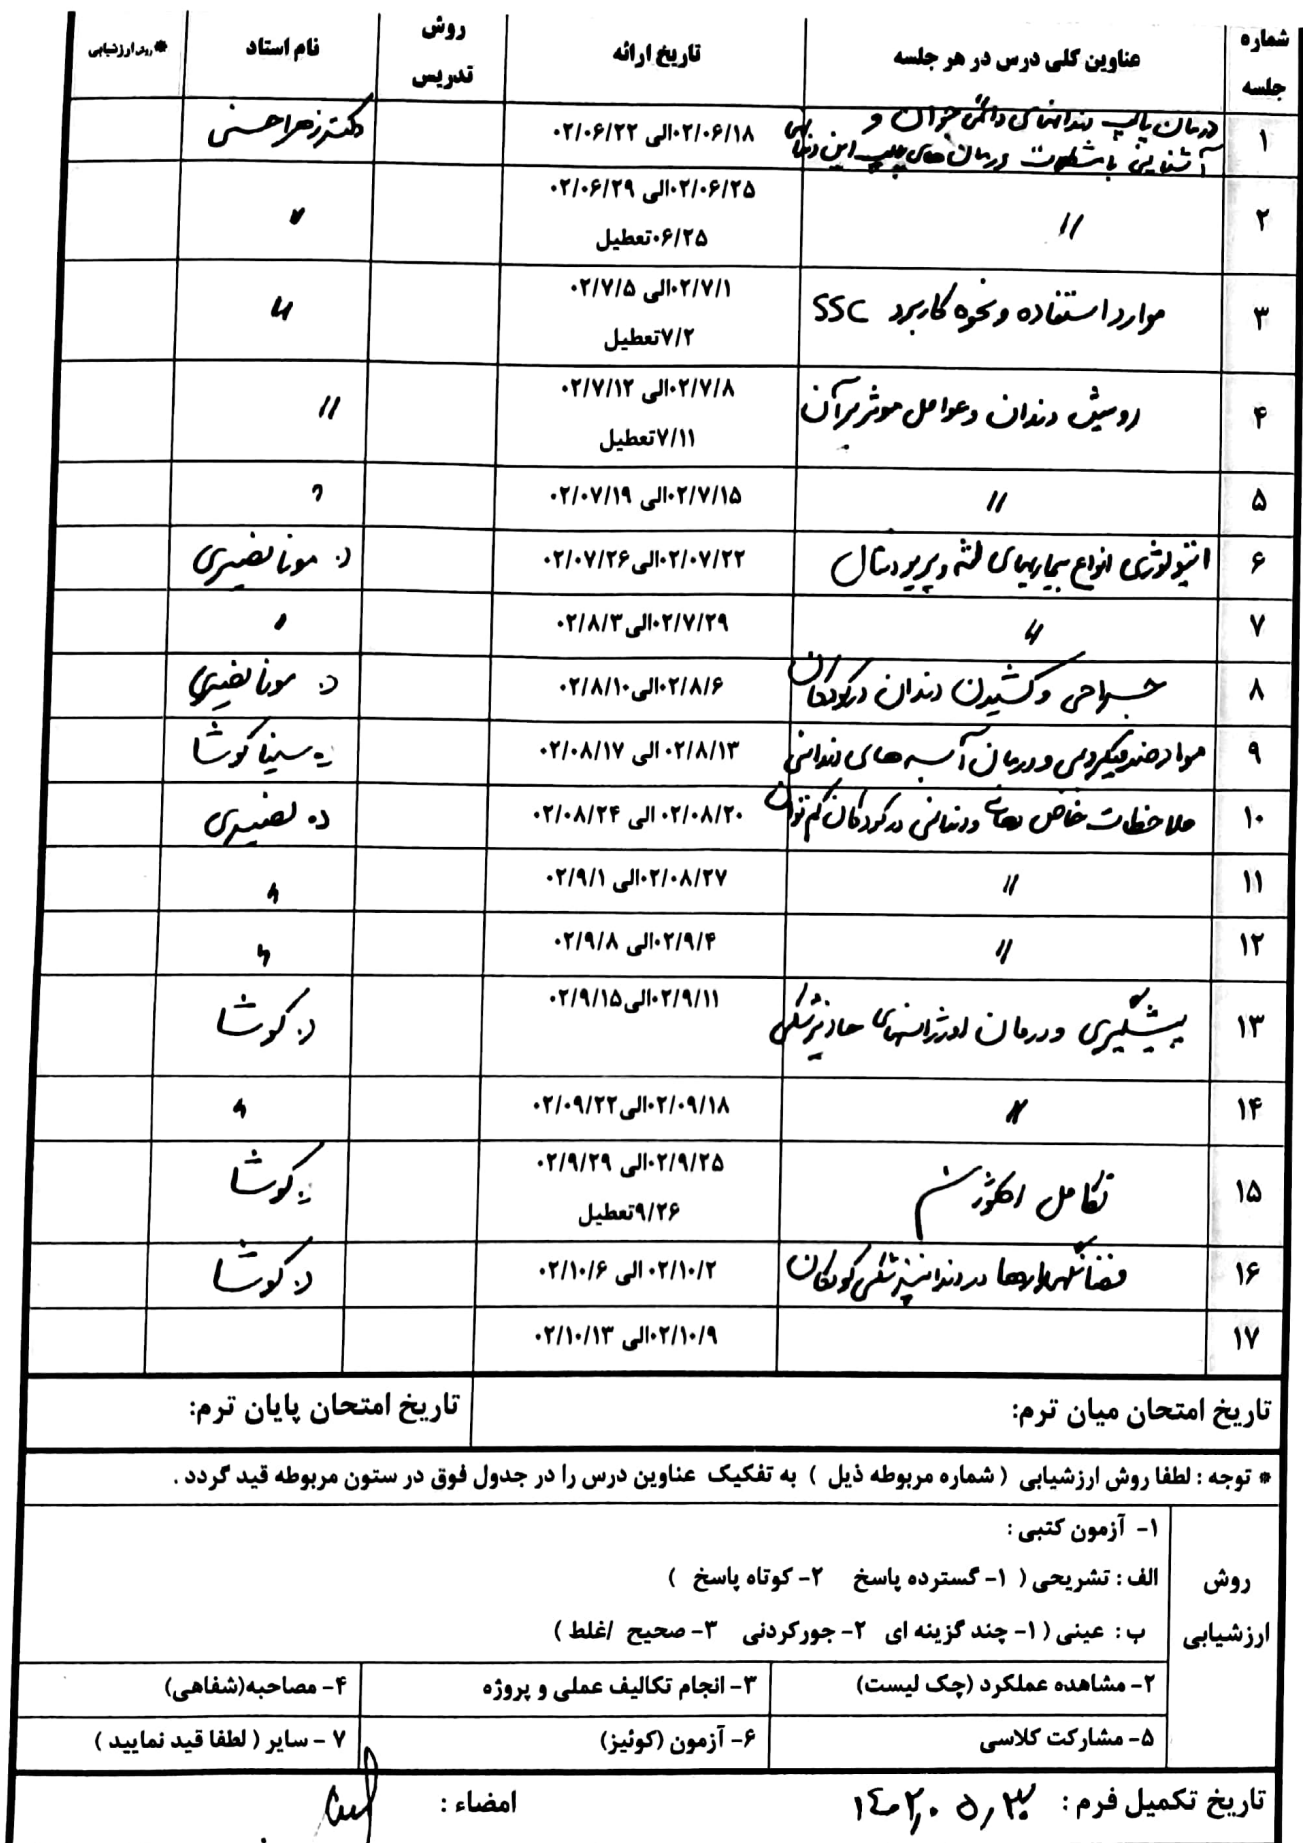 شماره جلسه | عناوین کلی درس در هر جلسه | تاریخ ارائه | روش تدریس | نام استاد | *روش ارزشیابی
۱ | درمان پالپ دندانهای دائمی جوان و آشنایی با مشکلات درمان های پالپ این دندانها | ۰۲/۰۶/۱۸الی ۰۲/۰۶/۲۲ | دکتر زهرا حسنی
۲ | // | ۰۲/۰۶/۲۵الی ۰۲/۰۶/۲۹ | //
۰۶/۲۵تعطیل
۳ | موارد استفاده و نحوه کاربرد SSC | ۰۲/۷/۱الی ۰۲/۷/۵ | //
۷/۲تعطیل
۴ | رویش دندان و عوامل موثر بر آن | ۰۲/۷/۸الی ۰۲/۷/۱۲ | //
۷/۱۱تعطیل
۵ | // | ۰۲/۷/۱۵الی ۰۲/۰۷/۱۹ | //
۶ | اتیولوژی انواع بیماریهای لثه و پریودنتال | ۰۲/۰۷/۲۲الی۰۲/۰۷/۲۶ | د. مونا نصیری
۷ | // | ۰۲/۷/۲۹الی ۰۲/۸/۳ | //
۸ | جراحی و کشیدن دندان در کودکان | ۰۲/۸/۶الی۰۲/۸/۱۰ | د. مونا نصیری
۹ | مواد ضد میکروبی و درمان آبسه های دندانی | ۰۲/۸/۱۳ الی ۰۲/۰۸/۱۷ | د. سینا کوشا
۱۰ | ملاحظات خاص دهان و دندانی در کودکان کم توان | ۰۲/۰۸/۲۰ الی ۰۲/۰۸/۲۴ | د. نصیری
۱۱ | // | ۰۲/۰۸/۲۷الی ۰۲/۹/۱ | //
۱۲ | // | ۰۲/۹/۴الی ۰۲/۹/۸ | //
۱۳ | پیشگیری و درمان اورژانسهای حاد پزشکی | ۰۲/۹/۱۱الی۰۲/۹/۱۵ | د. کوشا
۱۴ | // | ۰۲/۰۹/۱۸الی۰۲/۰۹/۲۲ | //
۱۵ | تکامل اکلوژن | ۰۲/۹/۲۵الی ۰۲/۹/۲۹ | د. کوشا
۹/۲۶تعطیل
۱۶ | فضا نگهدارها در دندانپزشکی کودکان | ۰۲/۱۰/۲ الی ۰۲/۱۰/۶ | د. کوشا
۱۷ | ۰۲/۱۰/۹الی ۰۲/۱۰/۱۳
تاریخ امتحان میان ترم: | تاریخ امتحان پایان ترم:
* توجه : لطفا روش ارزشیابی ( شماره مربوطه ذیل ) به تفکیک عناوین درس را در جدول فوق در ستون مربوطه قید گردد .
روش ارزشیابی
۱- آزمون کتبی :
الف : تشریحی ( ۱- گسترده پاسخ ۲- کوتاه پاسخ )
ب : عینی ( ۱- چند گزینه ای ۲- جورکردنی ۳- صحیح /غلط )
۲- مشاهده عملکرد (چک لیست) | ۳- انجام تکالیف عملی و پروژه | ۴- مصاحبه(شفاهی)
۵- مشارکت کلاسی | ۶- آزمون (کوئیز) | ۷ - سایر ( لطفا قید نمایید )
تاریخ تکمیل فرم : | امضاء :